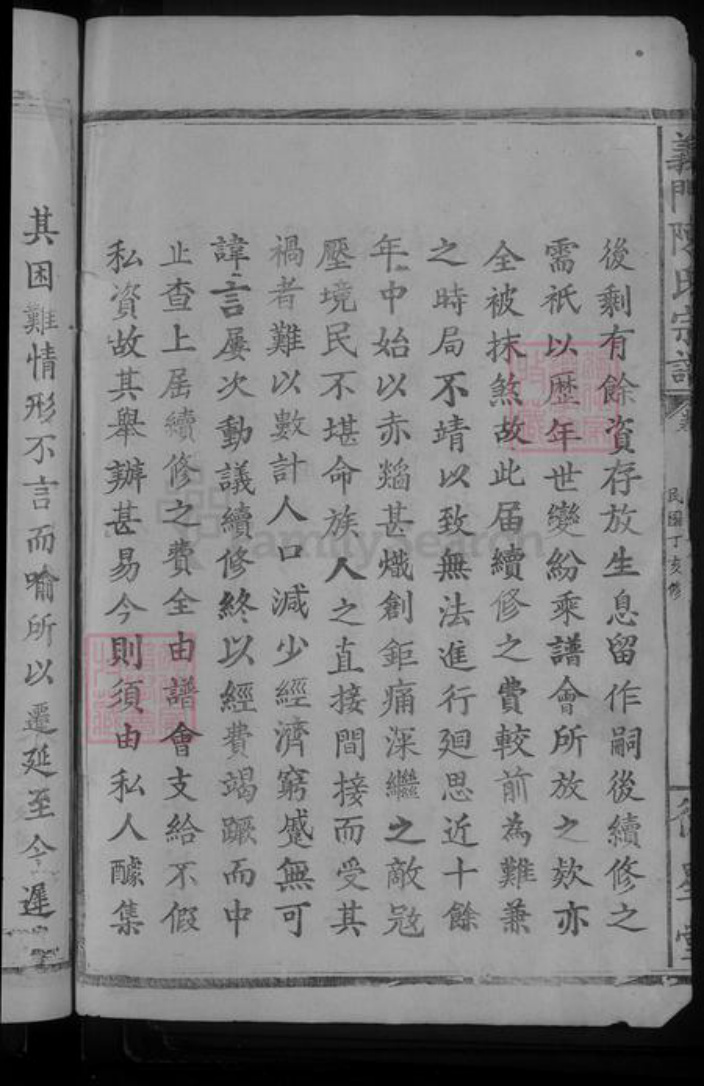 義門陳氏宗譜
民國丁亥修
後剩有餘資存放生息留作嗣後續修之
需祇以歷年世變紛乘譜會所放之欵亦
全被抹煞故此屆續修之費較前為難兼
之時局不靖以致無法進行廻思近十餘
年中始以赤燄甚熾創鉅痛深繼之敵冦
壓境民不堪命族人之直接間接而受其
禍者難以數計人口減少經濟窮蹙無可
諱言屢次動議續修終以經費竭蹶而中
止查上屆續修之費全由譜會支給不假
私資故其舉辦甚易今則須由私人醵集
其困難情形不言而喻所以遷延至今遲
FamilySearch